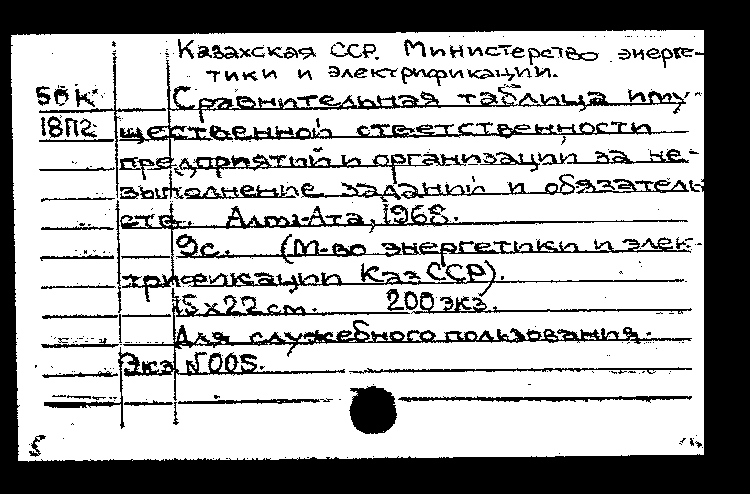 Казахская ССР. Министерство энерге-
тики и электрификации.
50к Сравнительная таблица иму-
18П2 щественной ответственности
предприятий и организации за не-
выполнение заданий и обязатель
ств. Алма-Ата, 1968.
9с. (М-во энергетики и элек-
трификации Каз ССР).
15х22 см. 200 экз.
Для служебного пользования.
Экз N005.